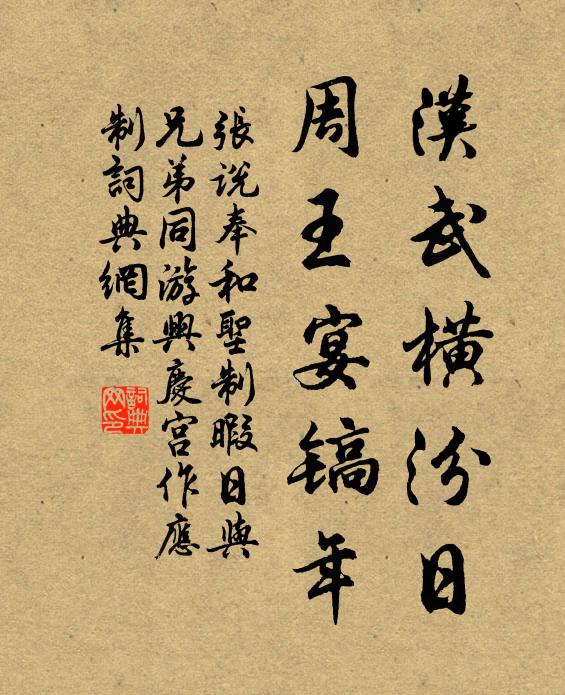 漢武橫汾日
周王宴镐年
張说奉和聖制暇日與
兄弟同游興慶宫作應
制詞典網集
詞典網印